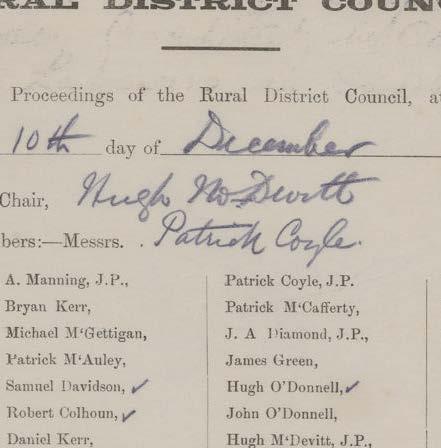 RAL DISTRICT COUNC
Proceedings of the Rural District Council, at
10th day of December
Chair, Hugh McDevitt
bers:—Messrs. . Patrick Coyle.
A. Manning, J.P.,
Bryan Kerr,
Michael M‘Gettigan,
Patrick M‘Auley,
Samuel Davidson, ✓
Robert Colhoun, ✓
Daniel Kerr,
Patrick Coyle, J.P.
Patrick M‘Cafferty,
J. A Diamond, J.P.,
James Green,
Hugh O’Donnell, ✓
John O’Donnell,
Hugh M‘Devitt, J.P.,